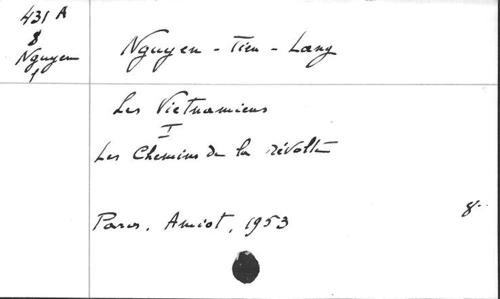 431 A
8
Nguyen
1
Nguyen - Tien - Lang
Les Vietnamiens
I
Les Chemins de la révolte
Paris, Amiot, 1953
8-